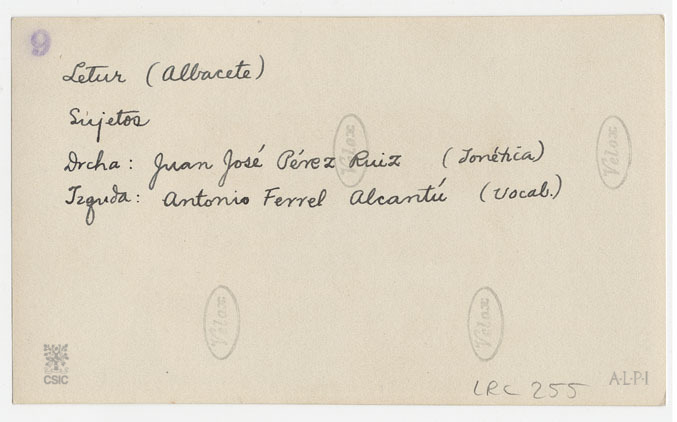 9
Letur (Albacete)
Sujetos
Drcha: Juan José Pérez Ruiz (Fonética)
Izquda: Antonio Ferrel Alcantú (Vocab.)
Velox
Velox
Velox
Velox
CSIC
LRC 255
A·L·P·I